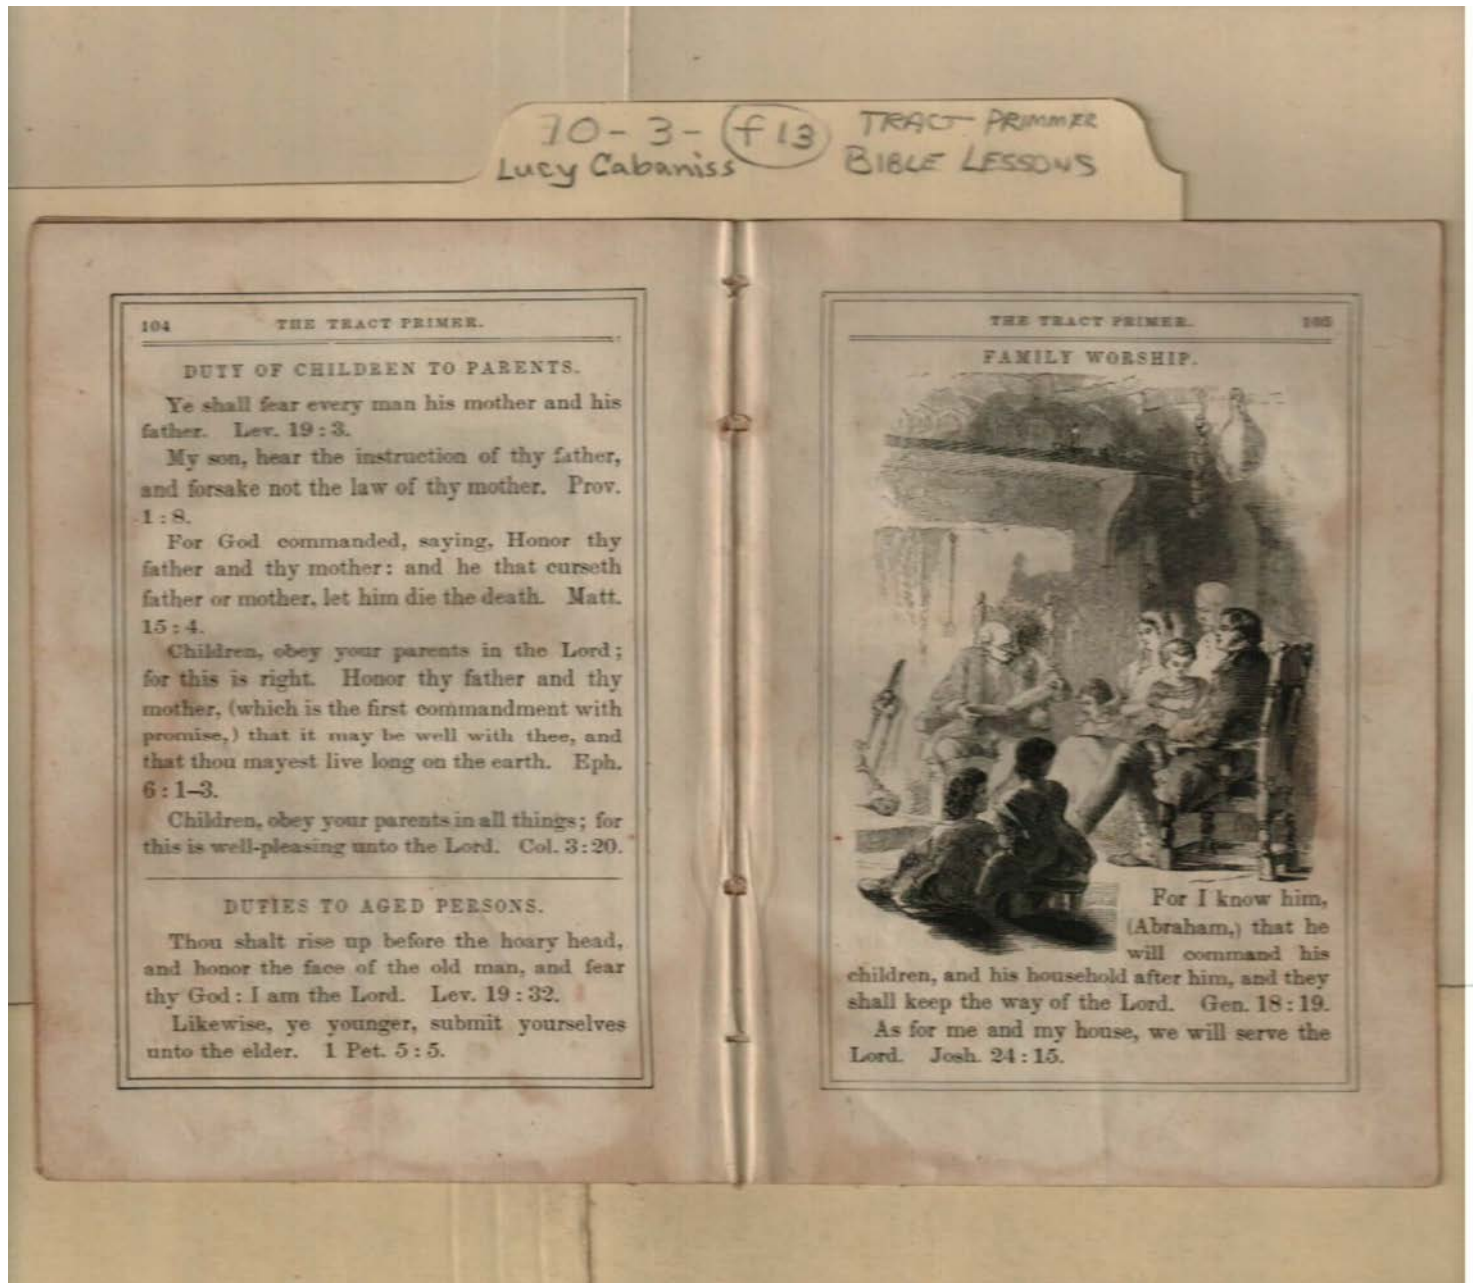 70-3-f13 TRACT PRIMMER
Lucy Cabaniss BIBLE LESSONS
104 THE TRACT PRIMER.
DUTY OF CHILDREN TO PARENTS.
Ye shall fear every man his mother and his
father. Lev. 19:3.
My son, hear the instruction of thy father,
and forsake not the law of thy mother. Prov.
1:8.
For God commanded, saying, Honor thy
father and thy mother: and he that curseth
father or mother, let him die the death. Matt.
15:4.
Children, obey your parents in the Lord;
for this is right. Honor thy father and thy
mother, (which is the first commandment with
promise,) that it may be well with thee, and
that thou mayest live long on the earth. Eph.
6:1–3.
Children, obey your parents in all things; for
this is well-pleasing unto the Lord. Col. 3:20.
DUTIES TO AGED PERSONS.
Thou shalt rise up before the hoary head,
and honor the face of the old man, and fear
thy God: I am the Lord. Lev. 19:32.
Likewise, ye younger, submit yourselves
unto the elder. 1 Pet. 5:5.
THE TRACT PRIMER. 105
FAMILY WORSHIP.
For I know him,
(Abraham,) that he
will command his
children, and his household after him, and they
shall keep the way of the Lord. Gen. 18:19.
As for me and my house, we will serve the
Lord. Josh. 24:15.